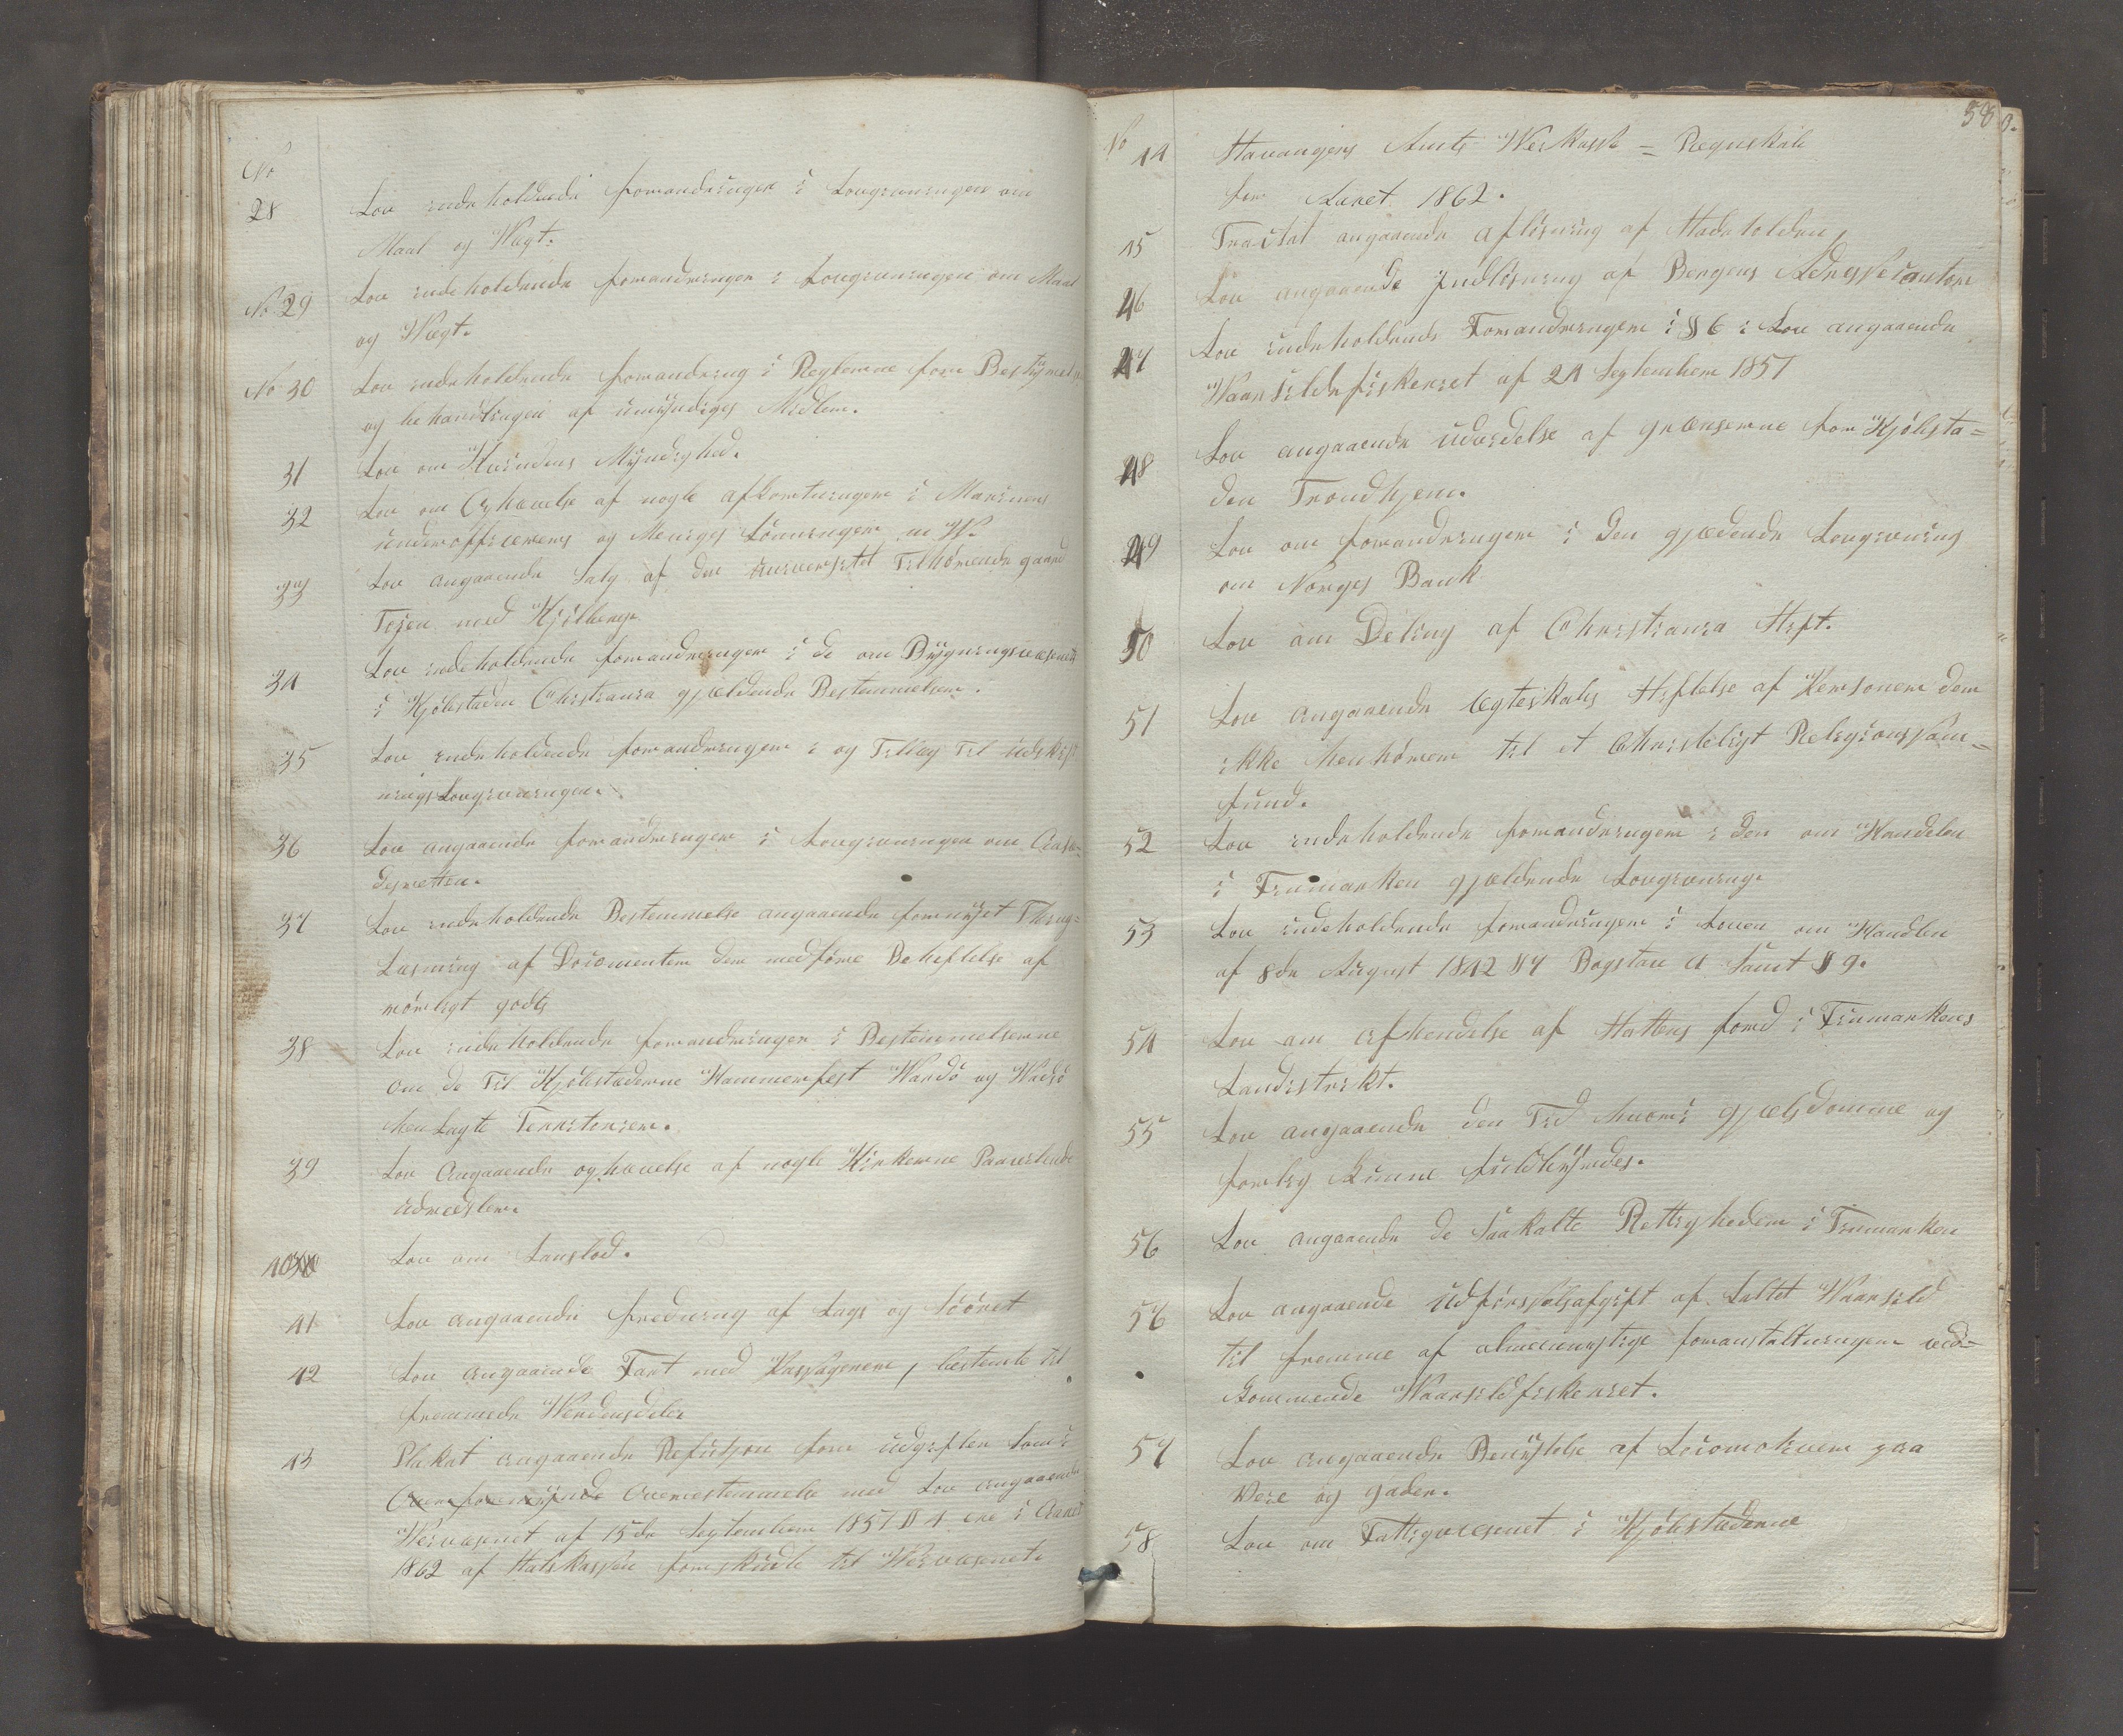 No
28 Lov indeholdende forandringer i Lovgivningen om
Maal og Vægt.
No 29 Lov indeholdende forandringer i Lovgivningen om Maal
og Vægt.
No 30 Lov indeholdende forandring i Reglerne for
og behandlingen af umÿndiges Midler.
31 Lov om Kvindens Mÿndighed.
32 Lov om Ophævelse af nogle afkortninger i Marinens
underofficerers og Meniges Lönninger m V.
33 Lov angaaende Salg af den universitet Tilhörende gaard
Töjen med Kjölberg
34 Lov indeholdende forandringer i de om Bÿgningsvæsenet
i Kjöbstaden Christiania gjældende Bestemmelser.
35 Lov indeholdende forandringer i og Tillæg til udskift
nings Lovgivningen.
36 Lov angaaende forandringer i Lovgivningen om Aasæ-
desretten.
37 Lov indeholdende Bestemmelse angaaende fornÿet Thing=
Læsning af Documenter der medföre Beheftelse af
rörligt gods
38 Lov indeholdende forandringer i Bestemmelserne
om de Til Kjöbstæderne Hammerfest Vardö og Vadsö
hen Lagte Territorier.
39 Lov Angaaende ophævelse af nogle Kirkerne Paavilende
udredsler.
40 Lov om Lauslod.
41 Lov angaaende fredning af Lags og Söörret
42 Lov angaaende Fart med Passagerer, bestemte til
fremmede Verdensdele
43 Plakat angaaende Refusjon for udgifter Som i
Overestemmelse med Lov angaaende
Veivæsenet af 15de September 1851 § 4 ere i Aaret
1862 af Statskassen forskudte til Veivæsenet
58
No 44 Stavangers Amts Veikasse = Regnskab
for Aaret 1862.
45 Tractat angaaende aflösning af Stadetolden
46 Lov angaaende Indlösning af Bergens
47 Lov indeholdende Forandringer i § 6 i Lov angaaende
Vaarsildefiskeriet af 24 September 1851
48 Lov angaaende udvidelse af grænserne for Kjöbsta=
den Trondhjem.
49 Lov om forandringer i den gjældende Lovgivning
om Norges Bank
50 Lov om Deling af Christiania Stift.
51 Lov angaaende ægteskabs Stiftelse af Personer der
ikke henhörer til et Christeligt Religionssam=
fund.
52 Lov indeholdende forandringer i den om Handelen
i Finmarken gjældende Lovgivning
53 Lov indeholdende forandringer i Loven om Handlen
af 8de August 1842 § 7 Bogstav a Samt § 9.
54 Lov om afhendelse af Statens Jord i Finmarkens
Landistrikt.
55 Lov angaaende den Tid hvori gjælsdomme og
forlig Kunne fuldbÿrdes.
56 Lov angaaende de Saakalte Rettigheder i Finmarken
56 Lov angaaende Udförselsafgift af Saltet Vaarsild
til fremme af almennyttige foranstaltninger ved-
Kommende Vaarsildfiskeriet.
57 Lov angaaende Benÿttelse af Locomotiver paa
Veie og gader.
58 Lov om Fattigvæsenet i Kjöbstæderne